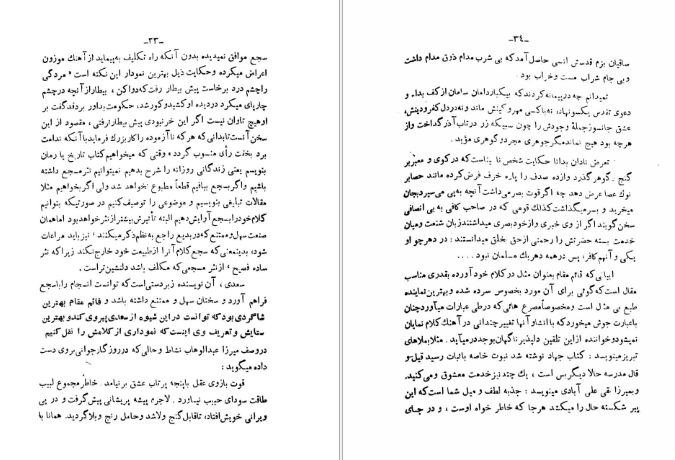 -۳۳-
سجع موافق نمیدیده بدون آنکه راه تکلیف به‌پیماید از آهنگ موزون
اعراض میکرده و حکایت ذیل بهترین نمودار این نکته است «مردکی
را چشم درد برخاست پیش بیطار رفت که دوا کن، بیطار از آنچه در چشم
چارپای میکرد در دیده او کشید و کور شد، حکومت بداور بردند گفت بر
او هیچ تاوان نیست اگر این خر نبودی پیش بیطار نرفتی، مقصود از این
سخن آنست تا بدانی که هر که نا آزموده را کار بزرگ فرماید با آنکه ندامت
برد بخفت رأی منسوب گردد» وقتی که میخواهیم کتاب تاریخ یا رمان
بنویسم یعنی زندگانی روزانه را شرح بدهیم نمیتوانیم نثر مسجع داشته
باشیم و اگر بسجع ببافیم قطعاً مطبوع نخواهد شد ولی اگر بخواهیم مثلا
مقالات تبلیغی بنویسیم و موضوعی را توصیف کنیم در صورتیکه بتوانیم
کلام خود را بسجع آرایش دهیم البته تأثیرش بیشتر از نثر خواهد بود اما همان
صنعت سهل و ممتنع که در بدیع راجع به نظم ذکر میکنند، نیز باید مراعات
شود، بدیتمعنی که سجع کلام آنرا از طبیعت خود خارج نکند زیرا که نثر
ساده فصیح، از نثر مسجعی که مکلف باشد دلنشین تر است.
سعدی، آن نویسنده زبردستی است که توانست انسجام را با سجع
فراهم آورد و سخنان سهل و ممتنع داشته باشد و قائم مقام بهترین
شاگردی بود که توانست در این شیوه از سعدی پیروی کند و بهترین
ستایش و تعریف وی اینست که نموداری از کلامش را نقل کنیم
در وصف میرزا عبدالوهاب نشاط و حالی که در روزگار جوانی بروی دست
داده میگوید:
قوت بازوی عقل باپنجه پرتاب عشق برنیامد. خاطر مجموع لبیب
طاقت سودای حبیب نیاورد. لاجرم پیشه پریشانی پیش گرفت و در پی
ویرانی خویش افتاد، تا قابل گنج ولا شد و حامل رنج و بلا گردید. همانا با
-۳۴-
ساقیان بزم قدسش انسی حاصل آمد که بی شرب مدام ذوق مدام داشت
و بی جام شراب مست و خراب بود.
نمیدانم چه در پیمانه کردند که بیکبار دامان سامان از کف بداد و
دعوی تقدس یکسو نهاد، نه باکسی مهر و کینش ماند و نه در دل کفر و دینش،
عشق جانسوز جملهٔ وجودش را چون سبیکه زر در تاب آذر گداخت واز
هرچه بود هیچ نماند مگر جوهری مجرد و گوهری مؤید.
تعرض نادان بدانا حکایت شخص نا بیناست که در کوی و معبر بر
گنج. گوهر گذرد وازده صدف را پاره خزف فرض کرده مانند حصا بر
نوک عصا عرض دهد چه اگر قوت بصر می داشت آنچه به پی میسپرد بجان
میخرید و بسر میگذاشت کذلک قومی که در صاحب کافی به بی انصافی
سخن گویند اگر از وی خبری و از خود بصری میداشتند زبان شنعت و میان
خدمت بسته حضرتش را رحمتی از حق بخلق میدانستند، در دهر چو او
یکی و آنهم کافر، پس در همه دهر یک مسلمان نبود....
ابیاتی که قائم مقام بعنوان مثل در کلام خود آورده بقدری مناسب
مقال است که گوئی برای آن مورد بخصوص سروده شده و بهترین نماینده
طبع بی مثال است و مخصوصاً مصرع هائی که در طی عبارات میآورد چنان
با عبارت جوش میخورد که با انشاء آنها تغییر چندانی در آهنگ کلام نمایان
نمیشود و خواننده از این تلفیق دلپذیر ناگهان بوجد در میآید. مثلا بملاهای
تبریز مینویسد: کتاب جهاد نوشته شد نبوت خاصه باثبات رسید قیل و
قال مدرسه حالا دیگر بس است، یک چند نیز خدمت معشوق و می کنید.
و بمیرزا تقی علی آبادی مینویسد: جذبه لطف و میل شما است که این
پیر شکسته حال را میکشد هرجا که خاطر خواه اوست، و در جای